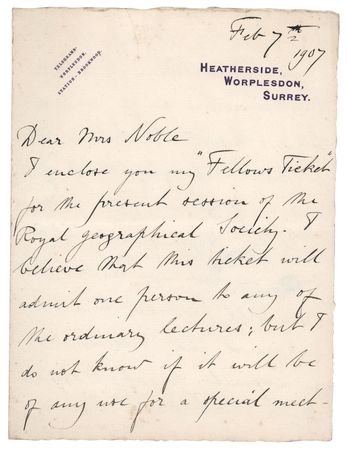 Feb 7th
1907
TELEGRAMS-
WORPLESDON.
STATION-BROOKWOOD.
HEATHERSIDE,
WORPLESDON,
SURREY.
Dear Mrs Noble
I enclose you my "Fellows Ticket"
for the present session of the
Royal geographical Society. I
believe that this ticket will
admit one person to any of
the ordinary lectures; but I
do not know if it will be
of any use for a special meet-